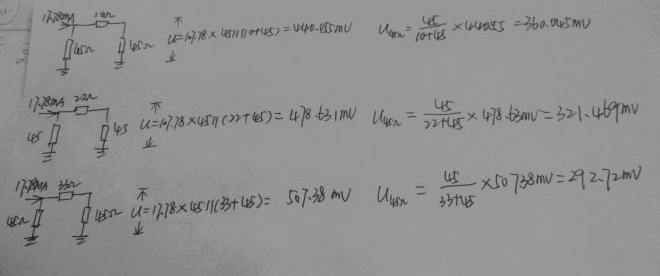 17.78mA 10Ω
45Ω 45Ω U=17.78×45//(10+45)=440.055mV U45Ω=45/10+45×440.055=360.045mV
17.78mA 22Ω
45 45 U=17.78×45//(22+45)=478.631mV U45Ω=45/22+45×478.63mV=321.469mV
17.78mA 33Ω
45Ω 45Ω U=17.78×45//(33+45)=507.38mV U45Ω=45/33+45×507.38mV=292.72mV